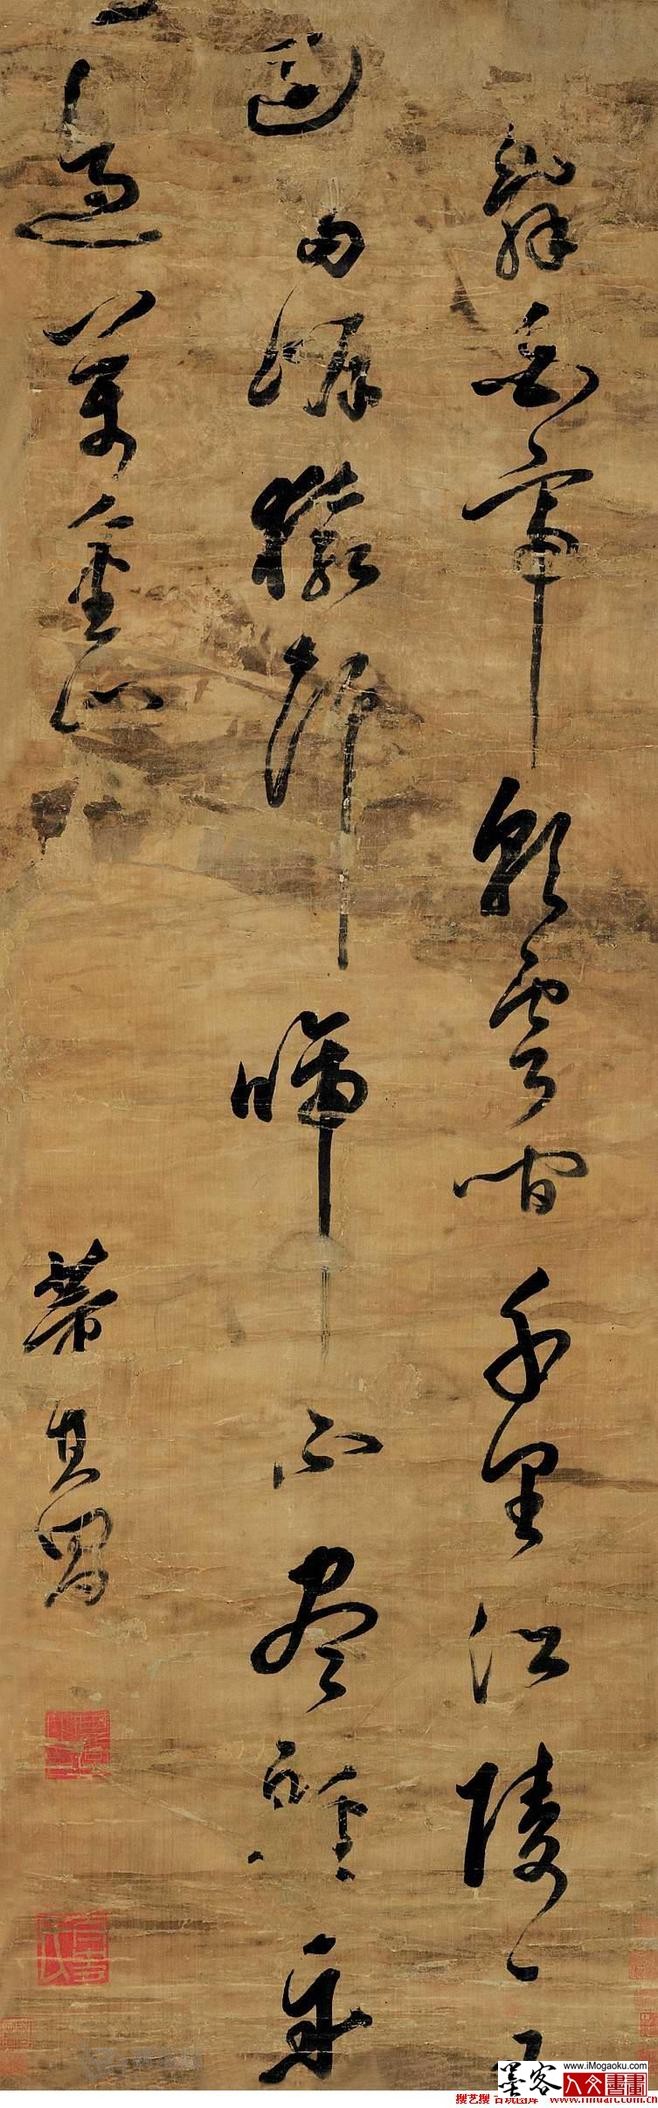 辭白帝彩雲間千里江陵一日
還兩岸猿聲啼不盡輕舟
已過萬重山
董其昌
墨客
www.iMogaoku.com
人文書畫